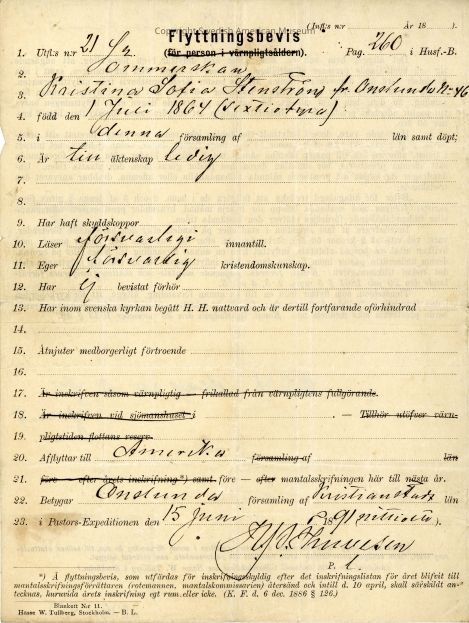 Copyright Swedish American Museum
(Infl:s n:r År 18 ).
Flyttningsbevis
(för person i värnpligtsåldern).
1. Utfl:s n:r 21 Pag. 260 i Husf.-B.
2. Sömmerskan
3. Kristina Sofia Stenström fr. Onslunda N: 46
4. född den 1 Juli 1864 (sextiofyra)
5. i denna församling af län samt döpt;
6. Är till äktenskap ledig
7.
8.
9. Har haft skyddskoppor
10. Läser försvarligt innantill.
11. Eger försvarlig kristendomskunskap.
12. Har ej bevistat förhör
13. Har inom svenska kyrkan begått H. H. nattvard och är dertill fortfarande oförhindrad
14.
15. Åtnjuter medborgerligt förtroende
16.
17. Är inskrifven såsom värnpligtig — frikallad från värnpligtens fullgörande.
18. Är inskrifven vid sjömanshuset i — Tillhör utöfver värn-
19. pligtstiden flottans reserv.
20. Afflyttar till Amerika församling af län
21. före – efter årets inskrifning*) samt före — efter mantalsskrifningen här till nästa år.
22. Betygar Onslunda församling af Kristianstads län
23. i Pastors-Expeditionen den 15 Juni 1891 (nittioett).
P. L.
*) Å flyttningsbevis, som utfärdas för inskrifningsskyldig efter det inskrifningslistan för året blifvit till
mantalsskrifningsförrättaren (rotemannen, mantalskommissarien) återsänd och intill d. 10 april, skall särskildt an-
tecknas, huruvida årets inskrifning egt rum eller icke. (K. F. d. 6 dec. 1886 § 126.)
Blankett N:r 11.
Hasse W. Tullberg, Stockholm. — B. L.